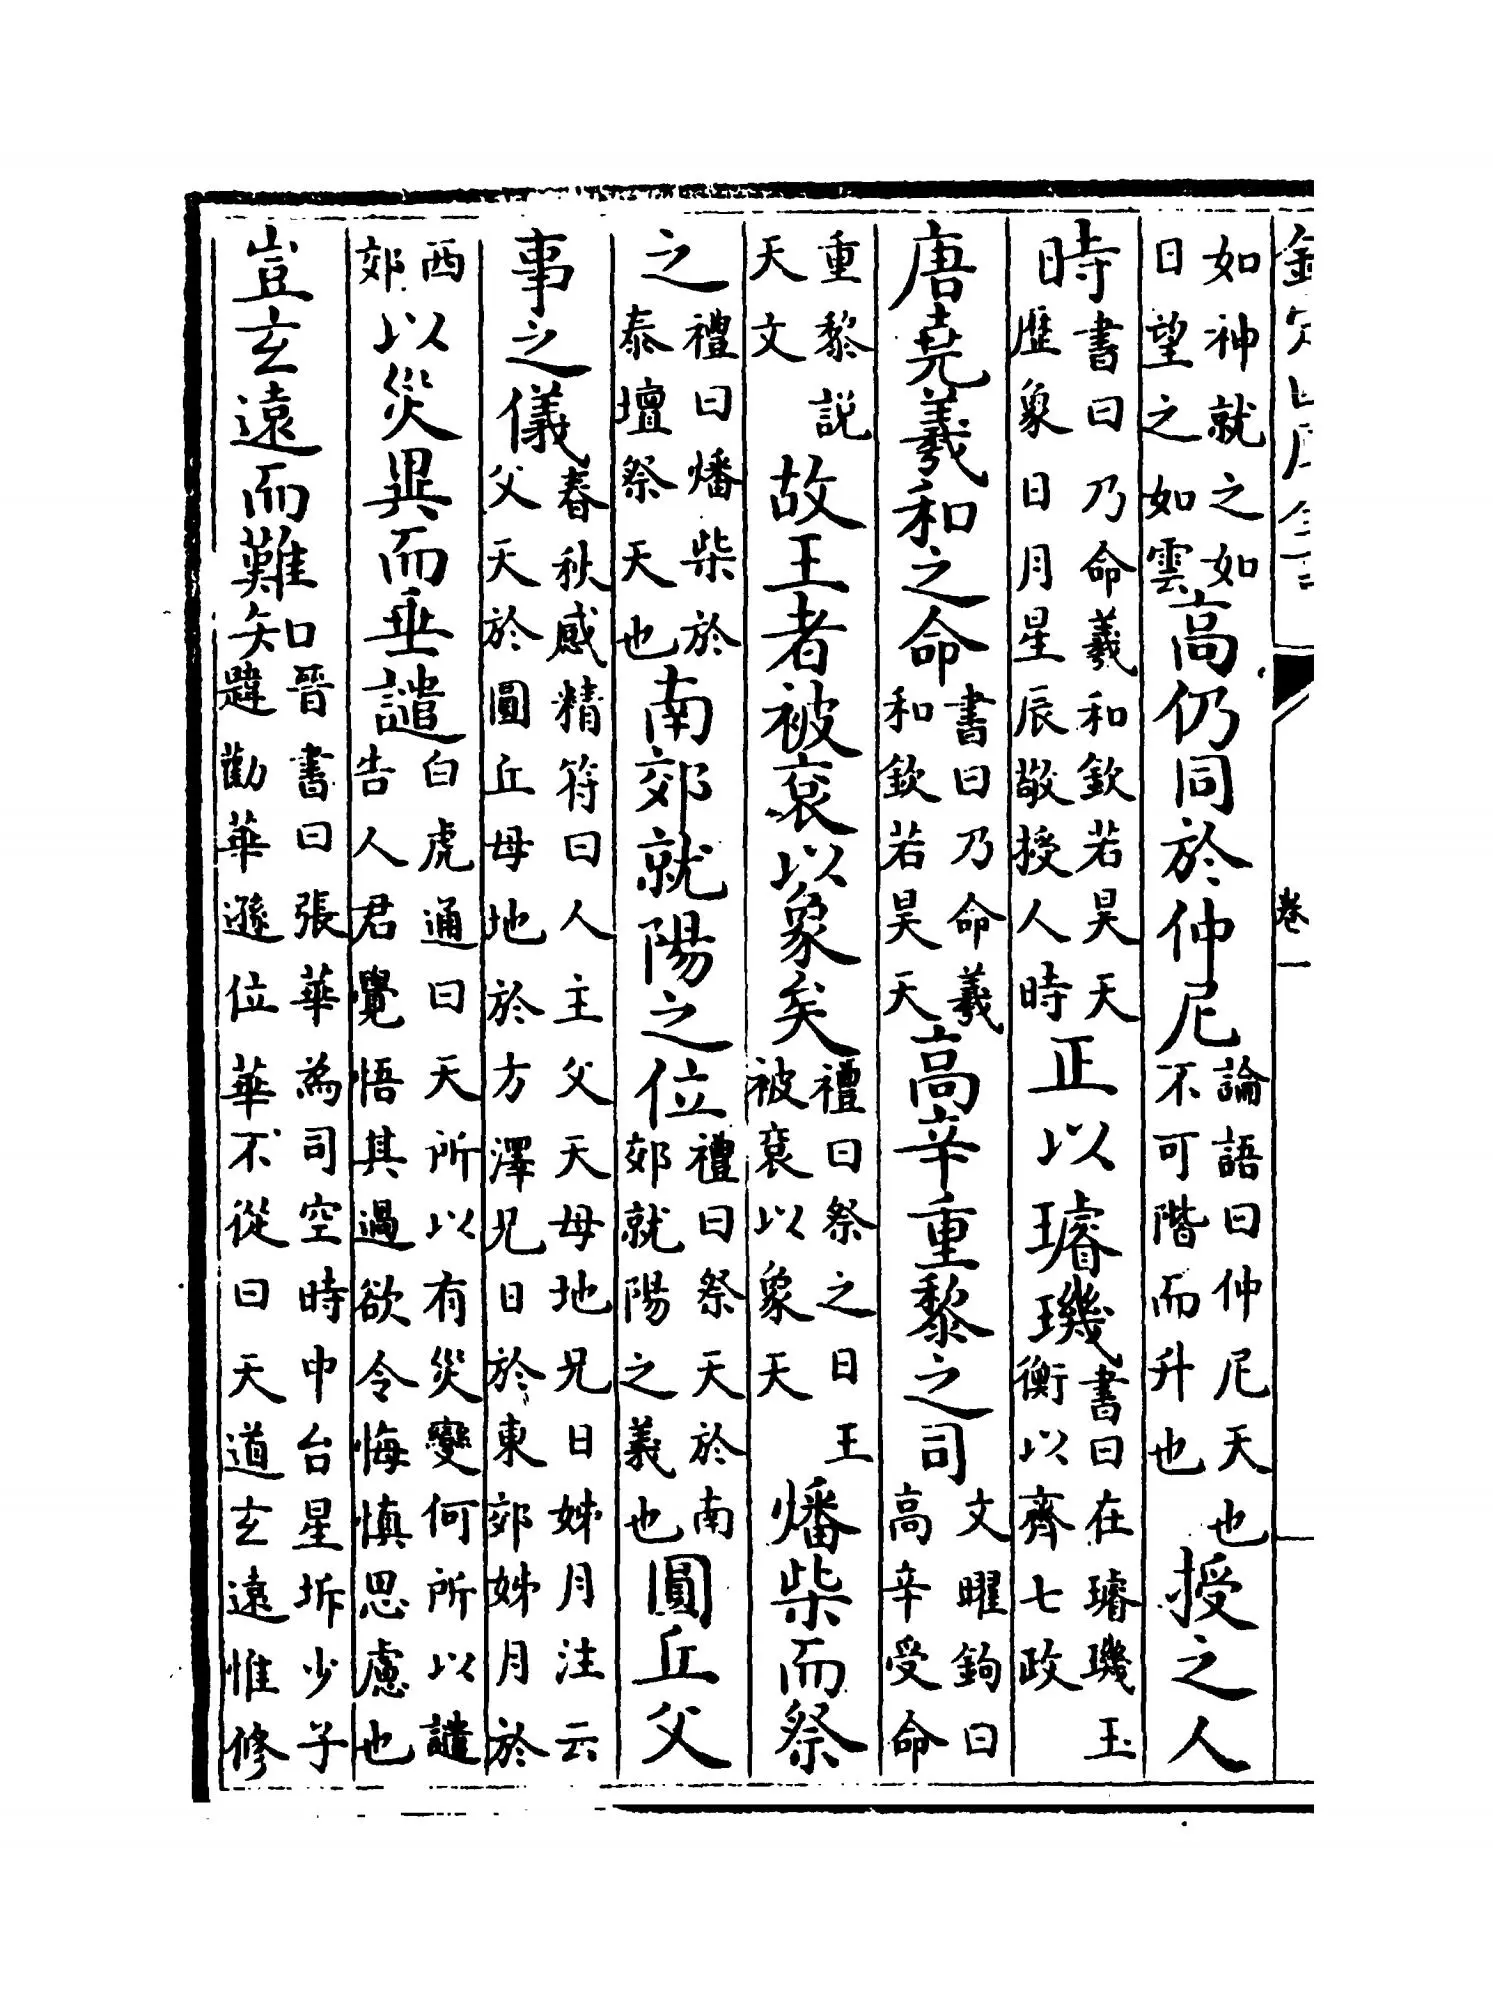 欽定四庫全書 卷一
如神就之如日望之如雲高仍同於仲尼論語曰仲尼天也不可階而升也授之人
時書曰乃命羲和欽若昊天歴象日月星辰敬授人時正以璿璣書曰在璿璣玉衡以齊七政
唐堯羲和之命書曰乃命羲和欽若昊天高辛重黎之司文曜鉤曰高辛受命
重黎説天文故王者被衮以象矣禮曰祭之日王被衮以象天燔柴而祭
之禮曰燔柴於泰壇祭天也南郊就陽之位禮曰祭天於南郊就陽之義也圓丘父
事之儀春秋感精符曰人主父天母地兄日姊月注云父天於圓丘母地於方澤兄日於東郊姊月於
西郊以災異而垂譴白虎通曰天所以有災變何所以譴告人君覺悟其過欲令悔慎思慮也
豈玄遠而難知晉書曰張華為司空時中台星坼少子韙勸華遜位華不從曰天道玄遠惟修